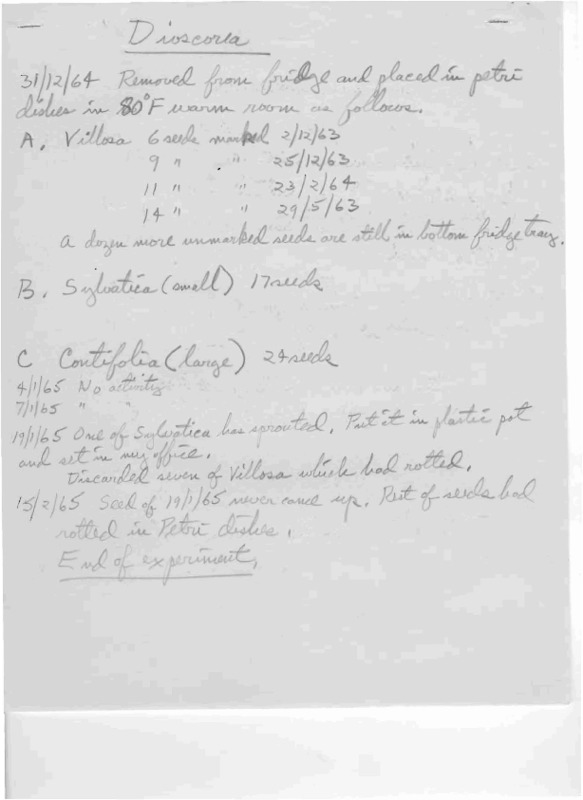 Dioscorea
31/12/64 Removed from fridge and placed in petri
dishes in 80°F warm room as follows.
A. Villosa 6 seeds marked 2/12/63
9 " " 25/12/63
11 " " 23/2/64
14 " " 29/5/63
A dozen more unmarked seeds are still in bottom fridge tray.
B. Sylvatica (small) 17 seeds
C Contifolia (large) 24 seeds
4/1/65 No activity
7/1/65 " "
19/1/65 One of Sylvatica has sprouted. Put it in plastic pot
and set in my office.
Discarded seven of Villosa which had rotted.
15/2/65 Seed of 19/1/65 never came up. Rest of seeds had
rotted in Petri dishes.
End of experiment.